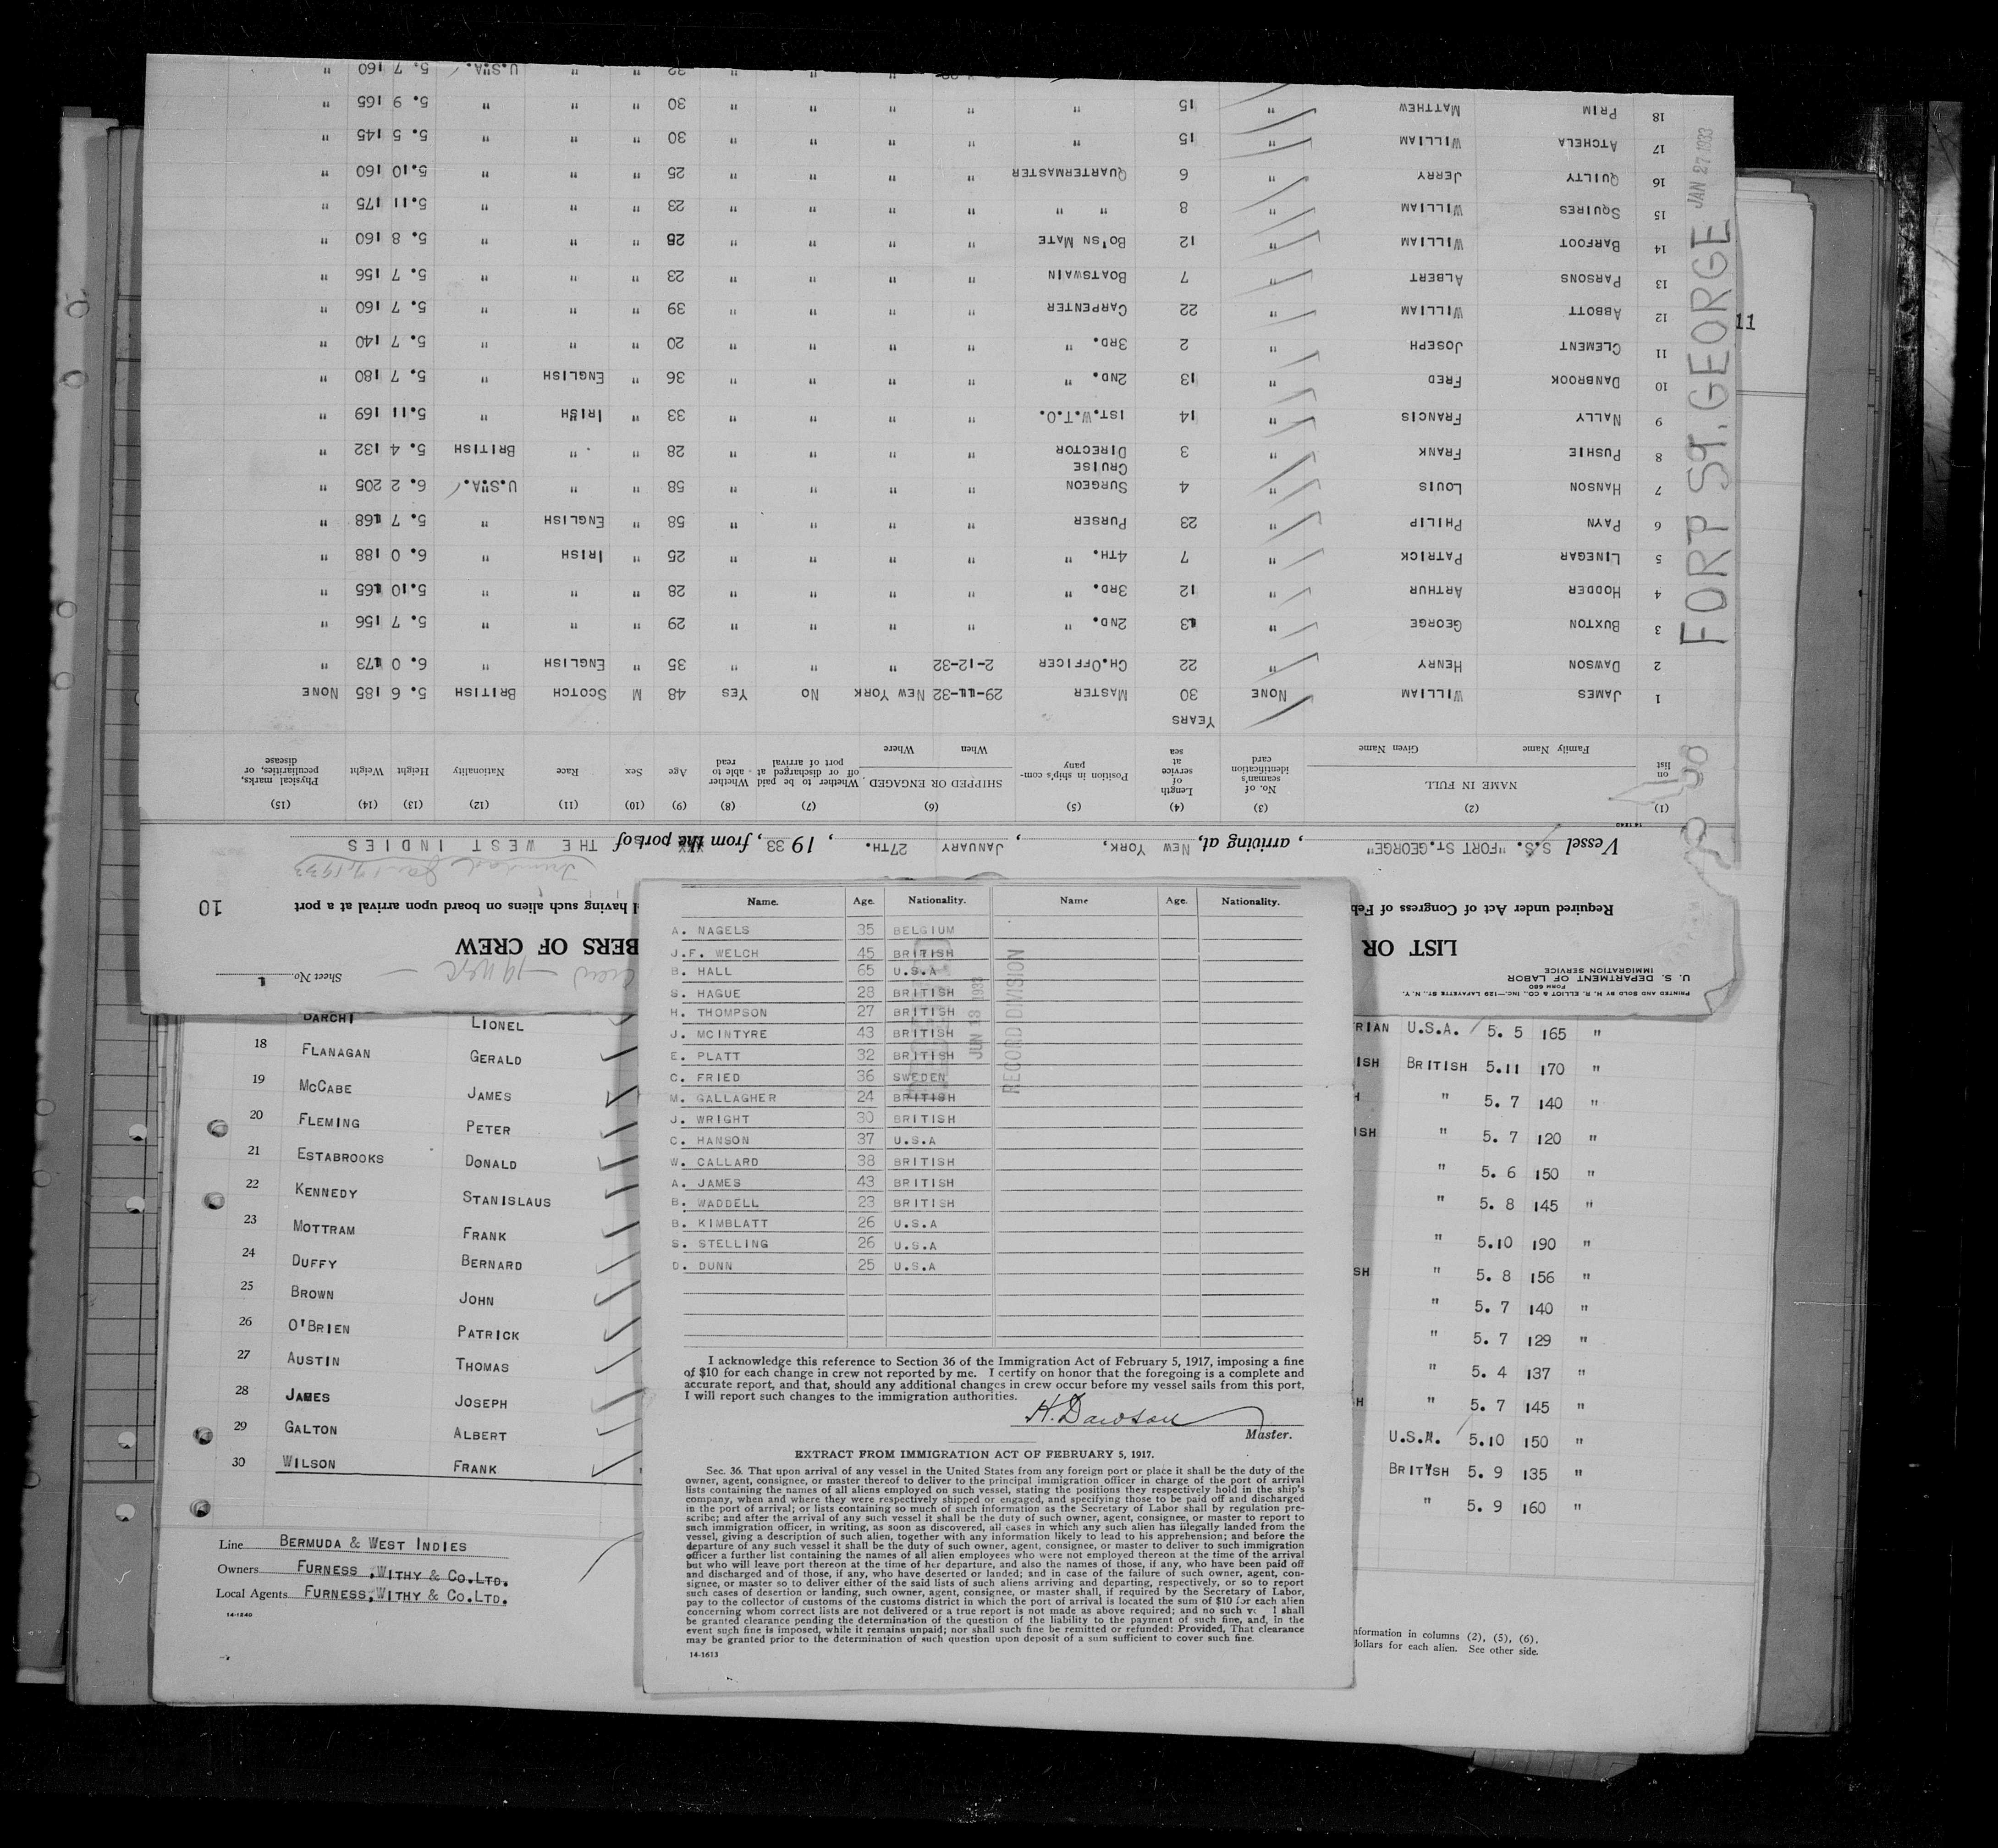 PRINTED AND SOLD BY H. R. ELLIOT & CO., INC.—129 LAFAYETTE ST., N. Y.
FORM 680
U. S. DEPARTMENT OF LABOR
IMMIGRATION SERVICE
Sheet No. 1
LIST OR BERS OF CREW
Required under Act of Congress of Feb having such aliens on board upon arrival at a port 10
Trinidad Jan 17, 1933
Vessel S.S. "FORT ST. GEORGE", arriving at, NEW YORK, JANUARY 27TH., 19 33, from the ports of THE WEST INDIES
14-1240
(1) (2) (3) (4) (5) (6) (7) (8) (9) (10) (11) (12) (13) (14) (15)
on list NAME IN FULL Family Name Given Name No. of seaman's identification card Length of service at sea Position in ship's company SHIPPED OR ENGAGED When Where Whether to be paid off or discharged at port of arrival Whether able to read Age Sex Race Nationality Height Weight Physical marks, peculiarities, or disease
YEARS
1 JAMES WILLIAM NONE 30 MASTER 29-11-32 NEW YORK NO YES 48 M SCOTCH BRITISH 5. 6 185 NONE
2 DAWSON HENRY " 22 CH.OFFICER 2-12-32 " " " 35 " ENGLISH " 6. 0 173 "
3 BUXTON GEORGE " 13 2ND. " " " " " 29 " " " 5. 7 156 "
4 HODDER ARTHUR " 12 3RD. " " " " " 28 " " " 5.10 165 "
5 LINEGAR PATRICK " 7 4TH. " " " " " 25 " IRISH " 6. 0 188 "
6 PAYN PHILIP " 23 PURSER " " " " 58 " ENGLISH " 5. 7 168 "
7 HANSON LOUIS " 4 SURGEON " " " " 58 " " U.S.A. 6. 2 205 "
8 PUSHIE FRANK " 3 CRUISE DIRECTOR " " " " 28 " " BRITISH 5. 4 132 "
9 NALLY FRANCIS " 14 1ST.W.T.O. " " " " 33 " IRISH " 5.11 169 "
10 DANBROOK FRED " 13 2ND. " " " " " 36 " ENGLISH " 5. 7 180 "
11 CLEMENT JOSEPH " 2 3RD. " " " " " 20 " " " 5. 7 140 "
12 ABBOTT WILLIAM " 22 CARPENTER " " " " 39 " " " 5. 7 160 "
13 PARSONS ALBERT " 7 BOATSWAIN " " " " 23 " " " 5. 7 156 "
14 BARFOOT WILLIAM " 12 BO'SN MATE " " " " 25 " " " 5. 8 160 "
15 SQUIRES WILLIAM " 8 " " " " " " 23 " " " 5.11 175 "
16 QUILTY JERRY " 6 QUARTERMASTER " " " " 25 " " " 5.10 160 "
17 ATCHELA WILLIAM " 15 " " " " " 30 " " " 5. 5 145 "
18 PRIM MATTHEW " 15 " " " " " 30 " " " 5. 9 165 "
" " " " 32 " " U.S.A. 5. 7 160 "
FORT ST. GEORGE JAN 27 1933
11
Name. Age. Nationality. Name Age. Nationality.
A. NAGELS 35 BELGIUM
J.F. WELCH 45 BRITISH
B. HALL 65 U.S.A
S. HAGUE 28 BRITISH
H. THOMPSON 27 BRITISH
J. MCINTYRE 43 BRITISH
E. PLATT 32 BRITISH
C. FRIED 36 SWEDEN
M. GALLAGHER 24 BRITISH
J. WRIGHT 30 BRITISH
C. HANSON 37 U.S.A
W. CALLARD 38 BRITISH
A. JAMES 43 BRITISH
B. WADDELL 23 BRITISH
B. KIMBLATT 26 U.S.A
S. STELLING 26 U.S.A
D. DUNN 25 U.S.A
RECORD DIVISION
I acknowledge this reference to Section 36 of the Immigration Act of February 5, 1917, imposing a fine
of $10 for each change in crew not reported by me. I certify on honor that the foregoing is a complete and
accurate report, and that, should any additional changes in crew occur before my vessel sails from this port,
I will report such changes to the immigration authorities.
H. Dawson
Master.
EXTRACT FROM IMMIGRATION ACT OF FEBRUARY 5, 1917.
Sec. 36. That upon arrival of any vessel in the United States from any foreign port or place it shall be the duty of the
owner, agent, consignee, or master thereof to deliver to the principal immigration officer in charge of the port of arrival
lists containing the names of all aliens employed on such vessel, stating the positions they respectively hold in the ship's
company, when and where they were respectively shipped or engaged, and specifying those to be paid off and discharged
in the port of arrival; or lists containing so much of such information as the Secretary of Labor shall by regulation pre-
scribe; and after the arrival of any such vessel it shall be the duty of such owner, agent, consignee, or master to report to
such immigration officer, in writing, as soon as discovered, all cases in which any such alien has illegally landed from the
vessel, giving a description of such alien, together with any information likely to lead to his apprehension; and before the
departure of any such vessel it shall be the duty of such owner, agent, consignee, or master to deliver to such immigration
officer a further list containing the names of all alien employees who were not employed thereon at the time of the arrival
but who will leave port thereon at the time of her departure, and also the names of those, if any, who have been paid off
and discharged and of those, if any, who have deserted or landed; and in case of the failure of such owner, agent, con-
signee, or master so to deliver either of the said lists of such aliens arriving and departing, respectively, or so to report
such cases of desertion or landing, such owner, agent, consignee, or master shall, if required by the Secretary of Labor,
pay to the collector of customs of the customs district in which the port of arrival is located the sum of $10 for each alien
concerning whom correct lists are not delivered or a true report is not made as above required; and no such ve l shall
be granted clearance pending the determination of the question of the liability to the payment of such fine, and, in the
event such fine is imposed, while it remains unpaid; nor shall such fine be remitted or refunded: Provided, That clearance
may be granted prior to the determination of such question upon deposit of a sum sufficient to cover such fine.
14-1613
DARCHI LIONEL RIAN U.S.A. 5. 5 165 "
18 FLANAGAN GERALD ISH BRITISH 5.11 170 "
19 MCCABE JAMES H " 5. 7 140 "
20 FLEMING PETER ISH " 5. 7 120 "
21 ESTABROOKS DONALD " 5. 6 150 "
22 KENNEDY STANISLAUS " 5. 8 145 "
23 MOTTRAM FRANK " 5.10 190 "
24 DUFFY BERNARD SH " 5. 8 156 "
25 BROWN JOHN " 5. 7 140 "
26 O'BRIEN PATRICK " 5. 7 129 "
27 AUSTIN THOMAS " 5. 4 137 "
28 JAMES JOSEPH H " 5. 7 145 "
29 GALTON ALBERT U.S.A. 5.10 150 "
30 WILSON FRANK BRITISH 5. 9 135 "
" 5. 9 160 "
Line BERMUDA & WEST INDIES
Owners FURNESS, WITHY & CO. LTD.
Local Agents FURNESS, WITHY & CO. LTD.
14-1240
nformation in columns (2), (5), (6),
dollars for each alien. See other side.